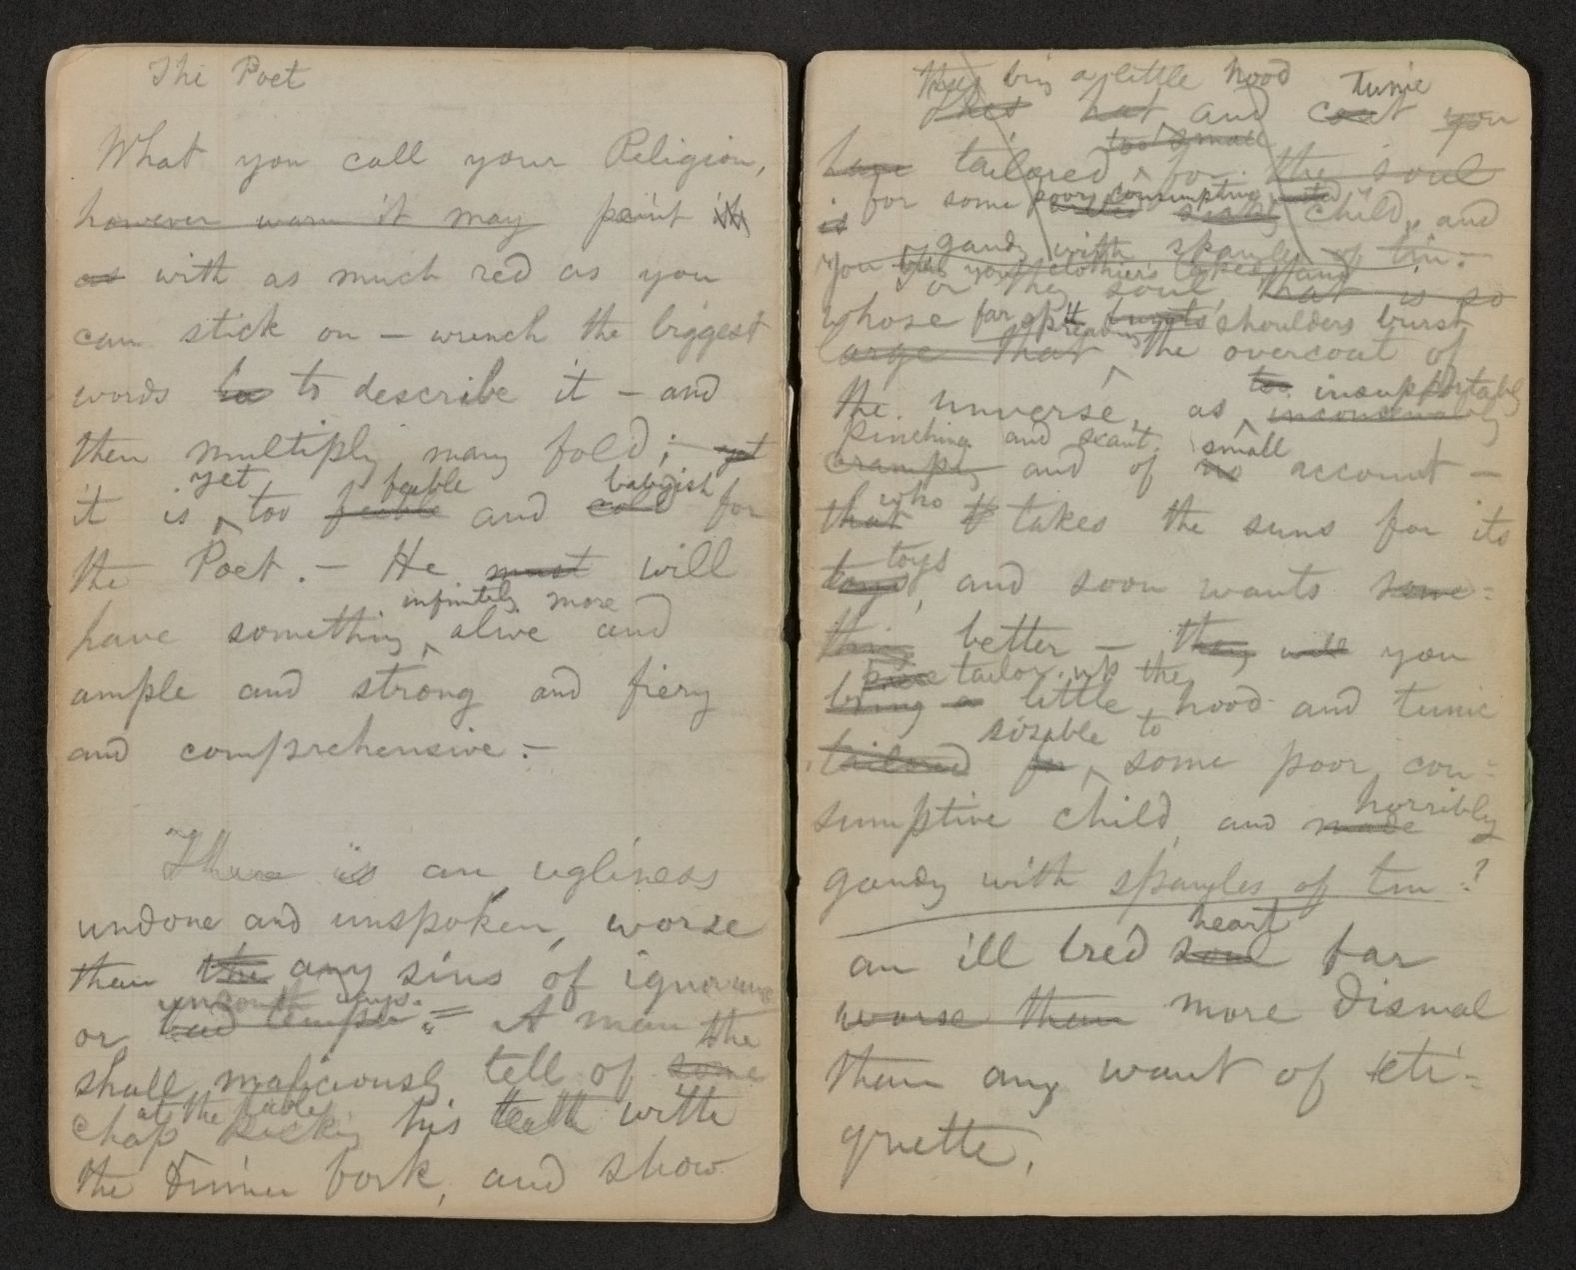 The Poet
What you call your Religion,
however warm it may paint it
as with as much red as you
can stick on — wrench the biggest
words to to describe it — and
then multiply many fold; — yet
yet feeble babyish
it is too feeble and cold for
the Poet. — He must will
infinitely more
have something alive and
ample and strong and fiery
and comprehensive. —
There is an ugliness
undone and unspoken, worse
than the any sins of ignorance
uncouth ways.
or bad temper. = A man
the
shall maliciously tell of some
at the table
chap picking his teeth with
the dinner fork, and show
They bring a little hood Tunic
hat and coat you
too small
have tailored for the soul
for some poor consumptive child, and
is
gaudy with spangles of tin. —
You your clothier's
or the soul that is so
whose far spreading shoulders burst
large that the overcoat of
to insupportably
the universe, as inconceivably
pinching and scant, small
cramply and of no account —
who
that it takes the suns for its
toys
toys, and soon wants some=
thing better — they will you
tailor up the
bring a little hood and tunic
sizable to
tailored for some poor con=
sumptive child, and made horribly
gaudy with spangles of tin?
heart
an ill bred soul far
worse than more dismal
than any want of eti=
quette.